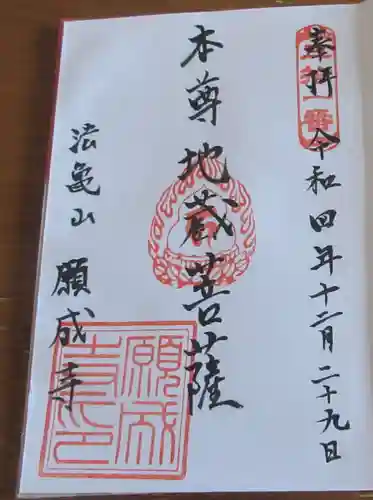 奉拝
令和四年十二月二十九日
本尊 地蔵菩薩
法亀山 願成寺
願成寺印